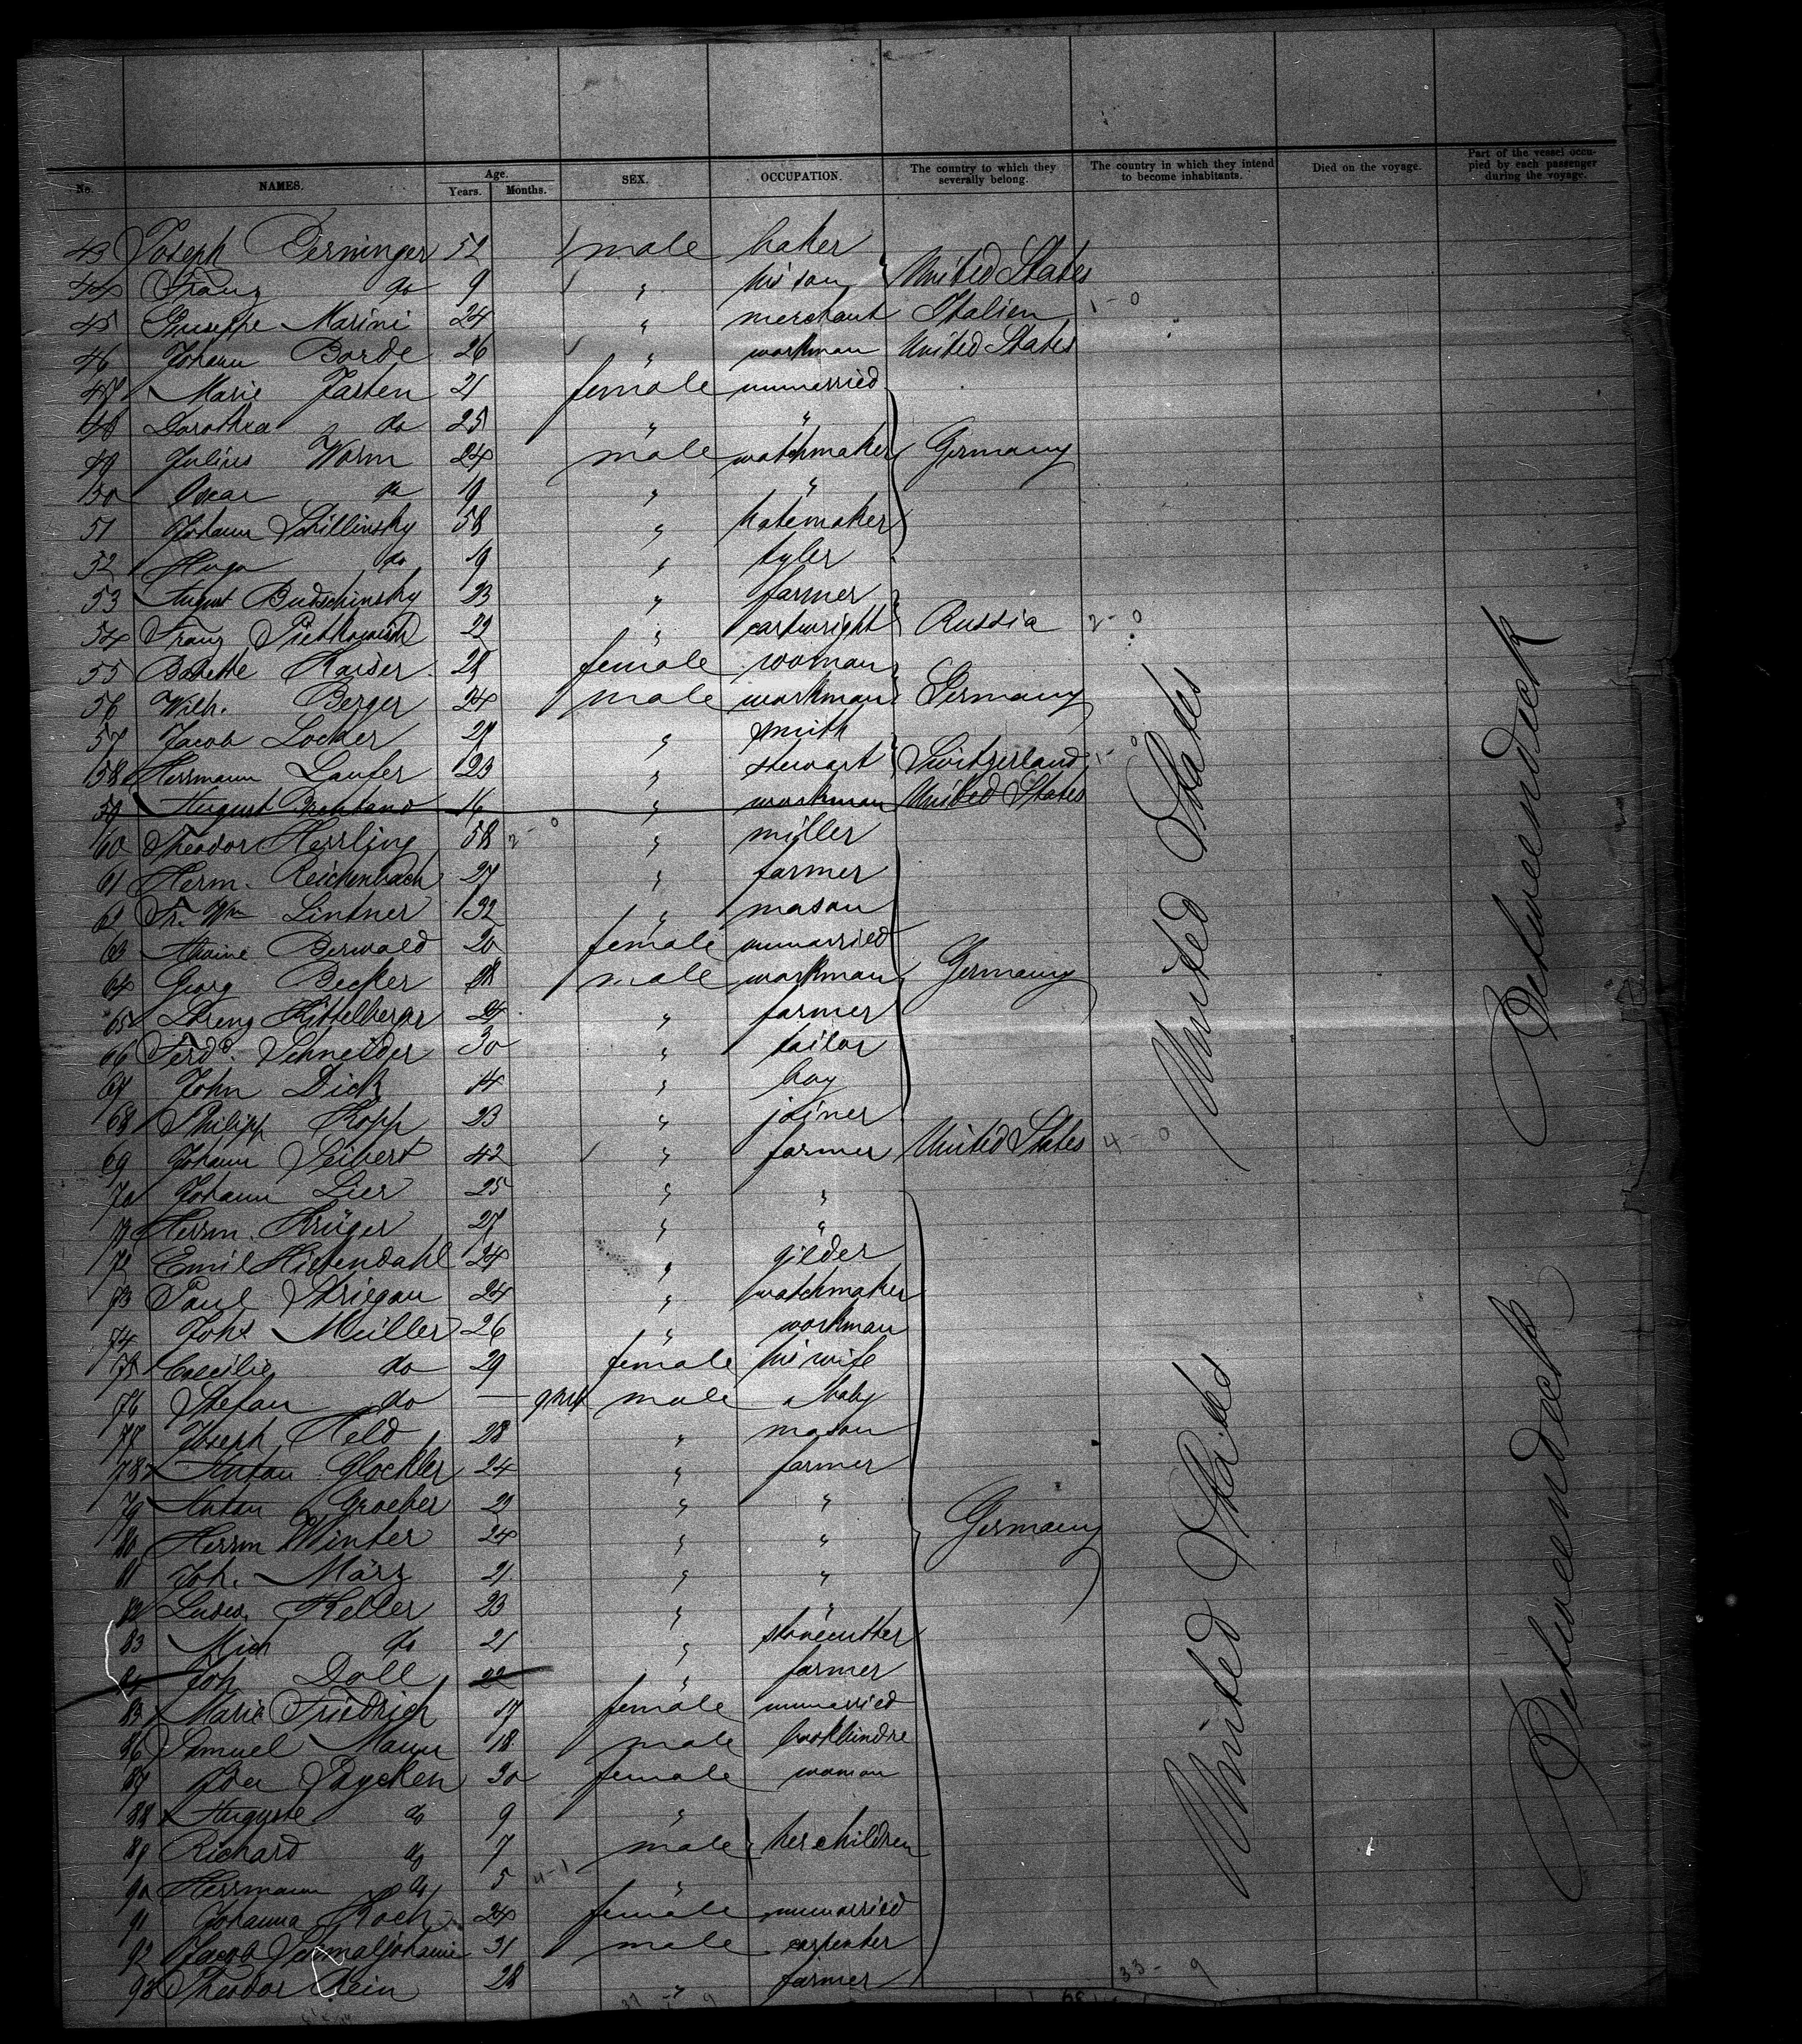 No. NAMES. Age. Years. Months. SEX. OCCUPATION. The country to which they severally belong. The country in which they intend to become inhabitants. Died on the voyage. Part of the vessel occupied by each passenger during the voyage.
43 Joseph Berninger 52 male baker
44 Franz do 9 " his son United States
45 Giuseppe Marini 24 " merchant Italien 1-0
46 Johann Borde 26 " workman United States
47 Marie Jasten 21 female unmarried
48 Dorothea do 25 " "
49 Julius Worm 24 male watchmaker Germany
50 Oscar do 19 " "
51 Johann Schillinsky 58 " hatemaker
52 Hugo do 19 " tyler
53 August Budschinsky 23 " farmer
54 Franz 29 " cartwright Russia 2-0
55 Babette Kaiser 28 female woman
56 Wilh. Berger 24 male workman Germany
57 Jacob Locher 29 " smith
58 Herrmann Laufer 23 " stewart Switzerland 1-0
59 August 16 " workman United States
60 Theodor Herrling 58 2-0 " miller
61 Herm. Reichenbach 27 " farmer
62 Fr. Wm Lintner 32 " mason
63 Berwald 20 female unmarried
64 Georg Becker 28 male workman Germany
65 Lorenz Kittelberger 24 " farmer
66 Ferdd. Schneider 30 " tailor
67 John Dick 14 " boy
68 Philipp Kopp 23 " joiner
69 Johann Seibert 42 " farmer United States 4-0
70 Johann Lier 25 " "
71 Herrm. Krüger 27 " "
72 Emil Hickendahl 24 " gilder
73 Paul Striegau 24 " watchmaker
74 Johs Müller 26 " workman
75 Caecilie do 29 female his wife
76 Stefan do — male baby
77 Joseph Held 28 " mason
78 Anton Glockler 24 " farmer
79 Anton Groeber 23 " "
80 Herrm Winter 24 " " Germany
81 Joh. März 21 " "
82 Ludw. Keller 23 " "
83 Mich do 21 " stonecutter
84 Joh Doll 22 " farmer
85 Marie Friedrich 17 female unmarried
86 Samuel Mann 18 male bookbindre
87 Ida Paycken 30 female woman
88 Auguste do 9 "
89 Richard do 7 male her children
90 Herrmann do 5 4-1 "
91 Johanna Koch 24 female unmarried
92 Jacob 31 male carpenter
93 Theodor Rein 28 " farmer 33-9
United States
United States
Betweendeck
Betweendeck